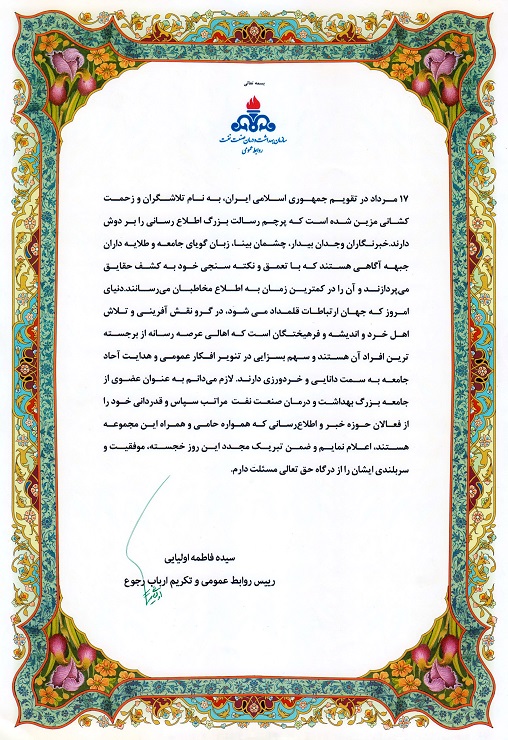 بسمه تعالی
سازمان بهداشت و درمان صنعت نفت
روابط عمومی
۱۷ مرداد در تقویم جمهوری اسلامی ایران، به نام تلاشگران و زحمت
کشانی مزین شده است که پرچم رسالت بزرگ اطلاع رسانی را بر دوش
دارند.خبرنگاران وجدان بیدار، چشمان بینا، زبان گویای جامعه و طلایه داران
جبهه آگاهی هستند که با تعمق و نکته سنجی خود به کشف حقایق
می‌پردازند و آن را در کمترین زمان به اطلاع مخاطبان می‌رسانند.دنیای
امروز که جهان ارتباطات قلمداد می شود، در گرو نقش آفرینی و تلاش
اهل خرد و اندیشه و فرهیختگان است که اهالی عرصه رسانه از برجسته
ترین افراد آن هستند و سهم بسزایی در تنویر افکار عمومی و هدایت آحاد
جامعه به سمت دانایی و خردورزی دارند. لازم می‌دانم به عنوان عضوی از
جامعه بزرگ بهداشت و درمان صنعت نفت مراتب سپاس و قدردانی خود را
از فعالان حوزه خبر و اطلاع‌رسانی که همواره حامی و همراه این مجموعه
هستند، اعلام نمایم و ضمن تبریک مجدد این روز خجسته، موفقیت و
سربلندی ایشان را از درگاه حق تعالی مسئلت دارم.
سیده فاطمه اولیایی
رییس روابط عمومی و تکریم ارباب رجوع